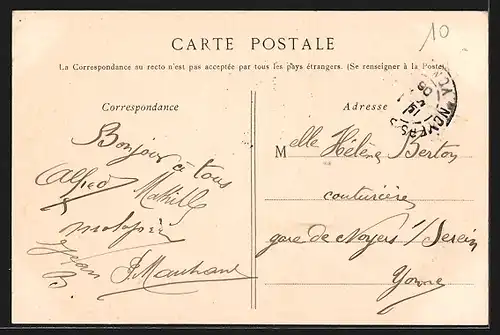 10
CARTE POSTALE
La Correspondance au recto n'est pas acceptée par tous les pays étrangers. (Se renseigner à la Poste)
Correspondance
Bonjour à tous
Alfred Mathille
Jean
B. Marchand
Adresse
Melle Hélène Berton
couturière
gare de Noyers s/ Serein
Yonne
NOYERS